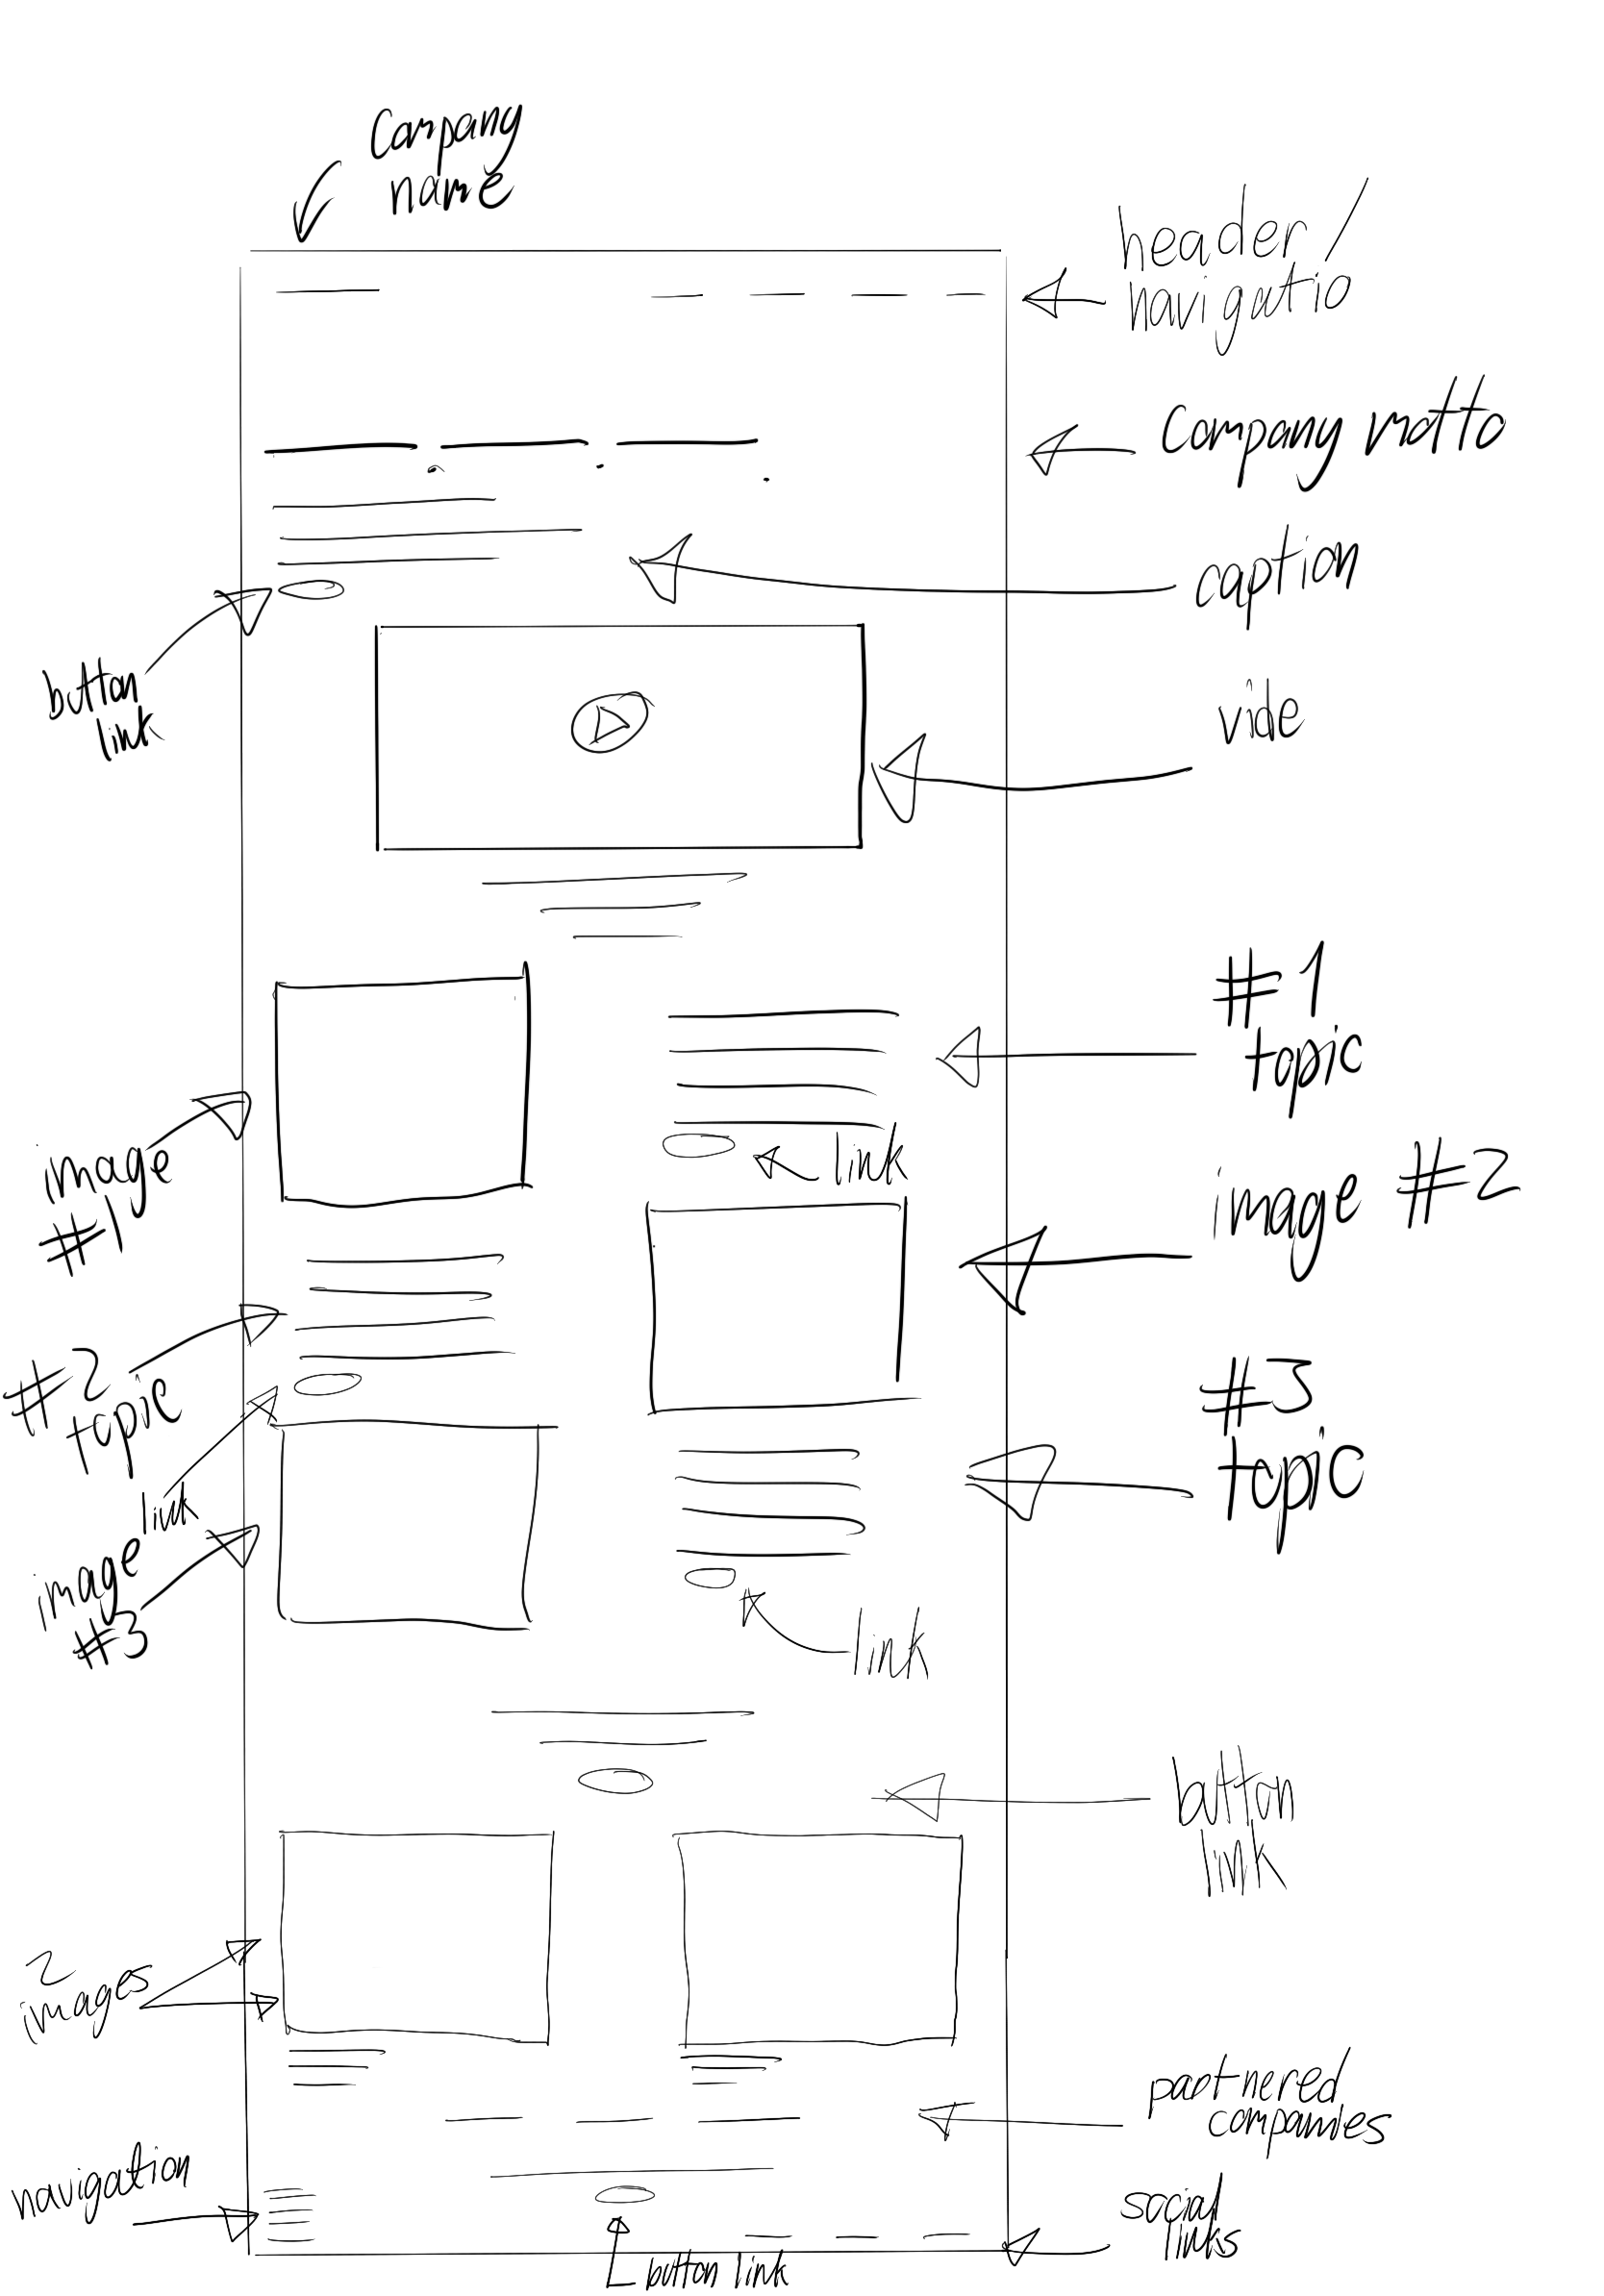 Company
name
header/
navigatio
Company motto
caption
button
link
vide
#1
topic
link
image
#1
image #2
#2
topic
#3
topic
link
image
#3
link
button
link
2
images
partnered
companies
navigation
social
links
button link